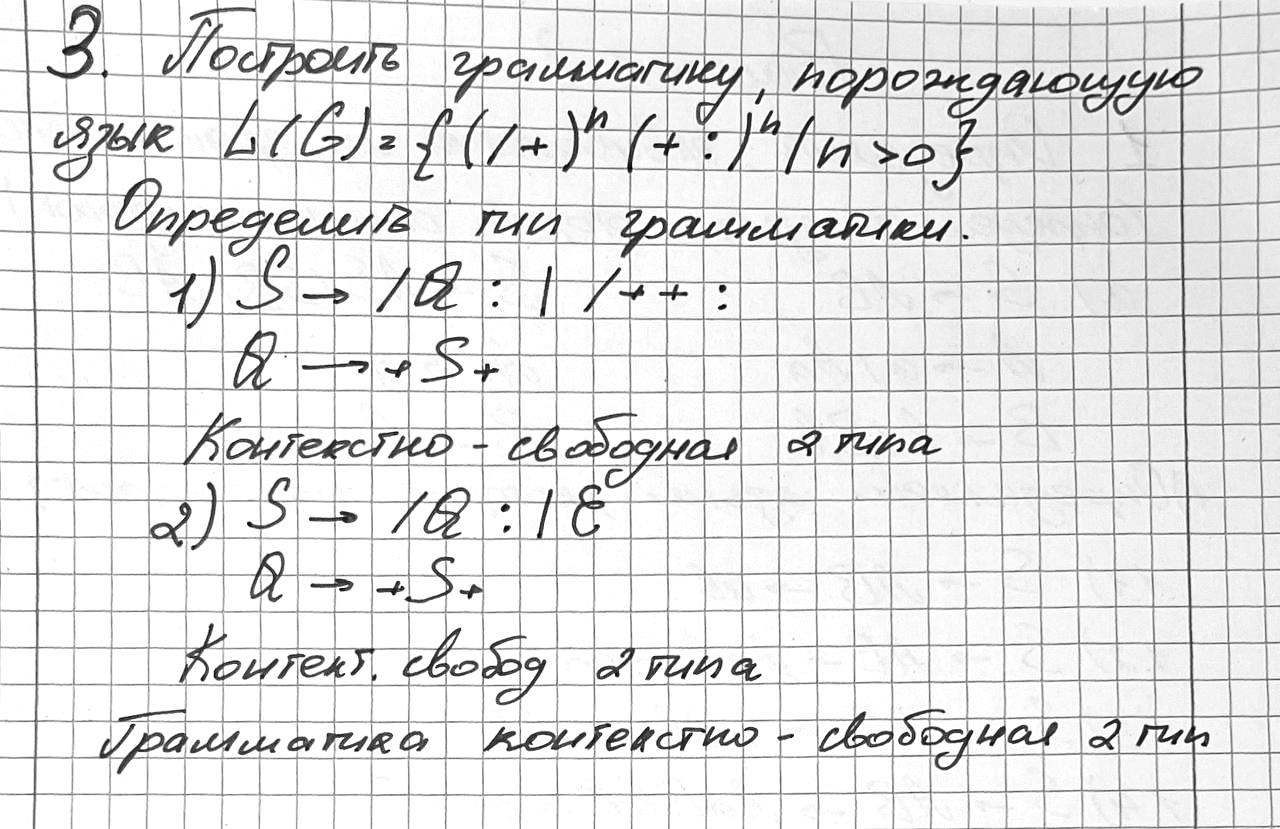 3. Построить грамматику, порождающую
язык L(G) = { (/+)ⁿ (+:)ⁿ | n>0}
Определить тип грамматики.
1) S → /Q : | /++ :
Q → +S+
Контекстно-свободная 2 типа
2) S → /Q : | Ɛ
Q → +S+
Контект. свобод 2 типа
Грамматика контекстно-свободная 2 тип